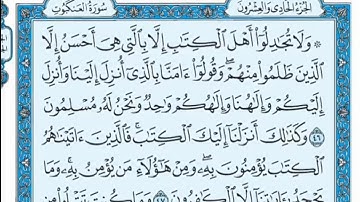 الجزء الحادى والعشرون
سورة العنكبوت
۞ وَلَا تُجَٰدِلُوٓا۟ أَهْلَ ٱلْكِتَٰبِ إِلَّا بِٱلَّتِى هِىَ أَحْسَنُ إِلَّا
ٱلَّذِينَ ظَلَمُوا۟ مِنْهُمْ ۖ وَقُولُوٓا۟ ءَامَنَّا بِٱلَّذِىٓ أُنزِلَ إِلَيْنَا وَأُنزِلَ
إِلَيْكُمْ وَإِلَٰهُنَا وَإِلَٰهُكُمْ وَٰحِدٌ وَنَحْنُ لَهُۥ مُسْلِمُونَ
٤٦ وَكَذَٰلِكَ أَنزَلْنَآ إِلَيْكَ ٱلْكِتَٰبَ ۚ فَٱلَّذِينَ ءَاتَيْنَٰهُمُ
ٱلْكِتَٰبَ يُؤْمِنُونَ بِهِۦ ۖ وَمِنْ هَٰٓؤُلَآءِ مَن يُؤْمِنُ بِهِۦ ۚ وَمَا
يَجْحَدُ بِـَٔايَٰتِنَآ إِلَّا ٱلْكَٰفِرُونَ ٤٧ وَمَا كُنتَ تَتْلُوا۟ مِن